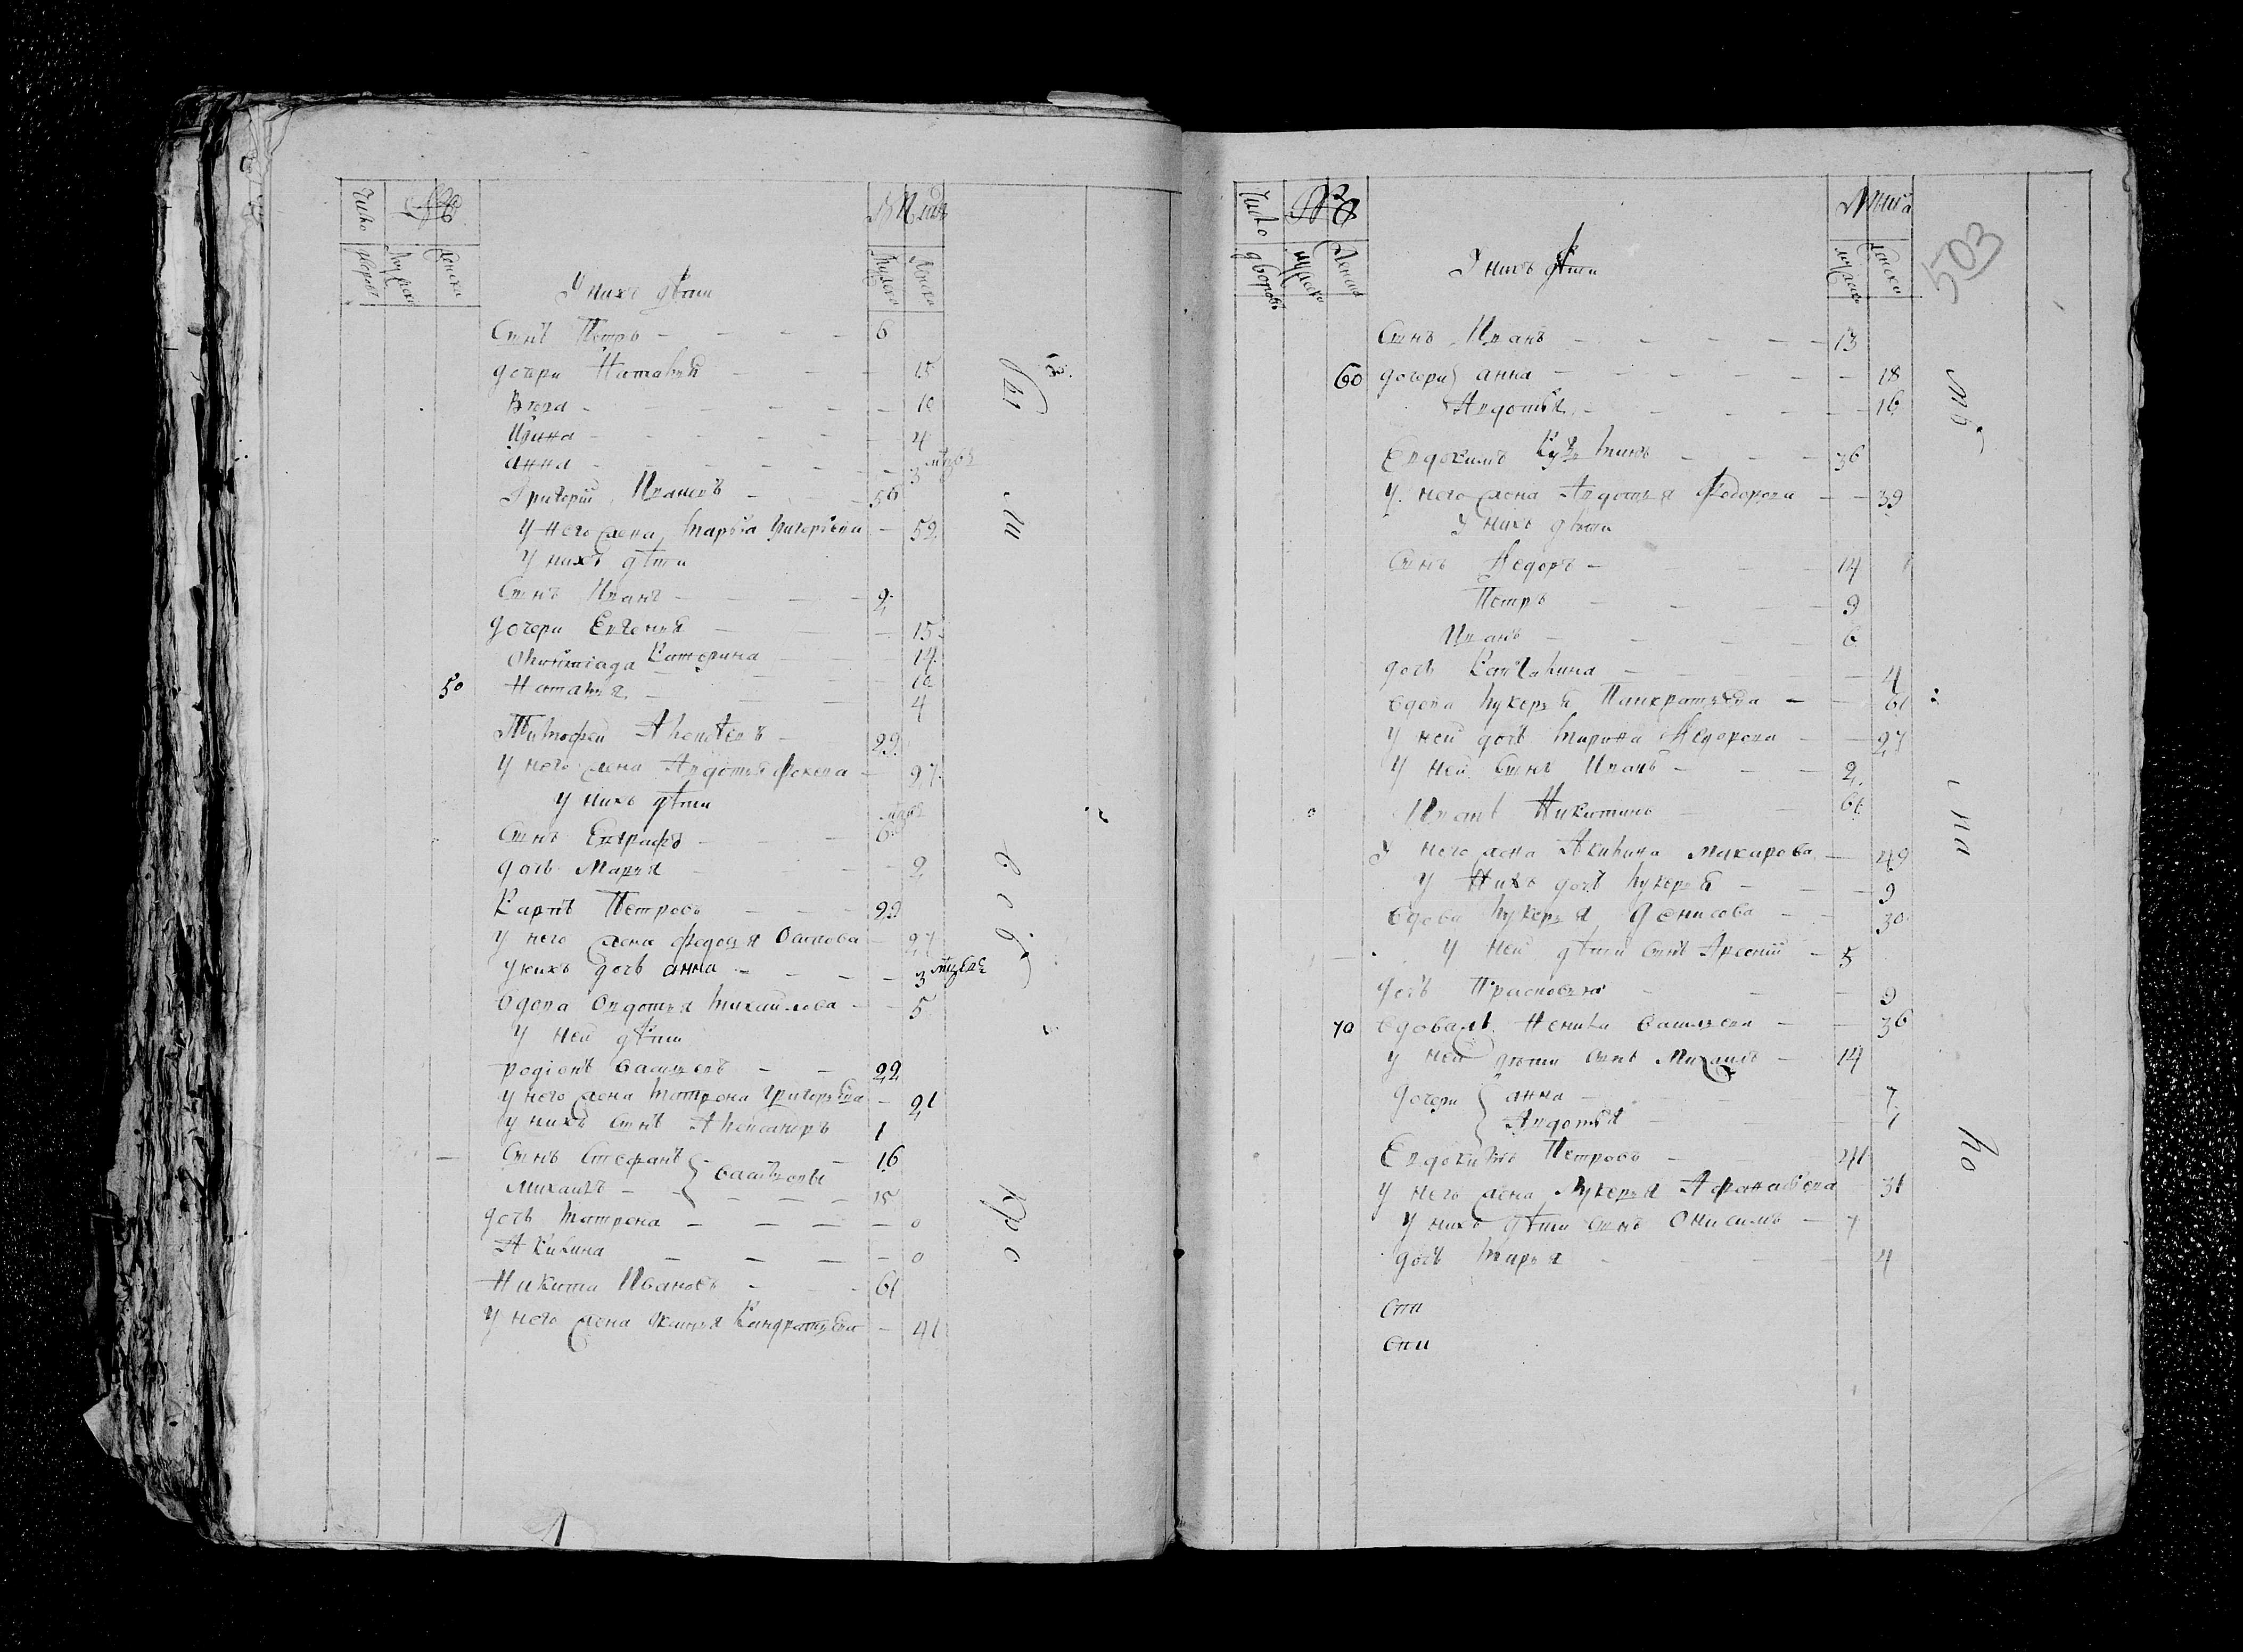 Число дворовъ
№
Мужеска
Женска
Лѣта
Мужеска
Женска
У нихъ дѣти
Сынъ Петръ 6
дочери Наталья 15
Вѣра 10
Ирина 4
анна 3
Григорий Ивановъ 56
У него жена Марья Григорьева 52
У нихъ дѣти
Сынъ Иванъ 2
дочери Евгенья 15
Олимпиада Катерина 14
10
50 Наталья 4
Тимофей Алексѣевъ 29
У него жена Авдотья Фокева 27
У нихъ дѣти
Сынъ Евграфъ 6
дочь Марья 2
Карпъ Петровъ 29
У него жена Федосья Осипова 27
У нихъ дочь анна 3
вдова Овдотья Михайлова 5
У ней дѣти
родіонъ васильевъ 22
У него жена Матрона Григорьева 21
У нихъ сынъ Александръ 1
Сынъ Стефанъ васильевы 16
Михаилъ 15
дочь Матрона 0
Акилина 0
Никита Ивановъ 61
У него жена Ксенья Кондратьева 41
Число дворовъ
№
Мужеска
Женска
Лѣта
Мужеска
Женска
503
У нихъ дѣти
Сынъ Иванъ 13
60 дочери анна 18
Авдотья 16
Евдокимъ Кузминъ 36
У него жена Авдотья Федорова 39
У нихъ дѣти
Сынъ Федоръ 14
Петръ 9
Иванъ 6
дочь Катерина 4
вдова Лукерья Панкратьева 61
У ней дочь Марина Федорова 27
У ней Сынъ Иванъ 2
Иванъ Никитинъ 61
У него жена Акилина Макарова 49
У нихъ дочь Лукерья 9
вдова Лукерья Денисова 30
У ней дѣти сынъ Арсений 5
дочь Прасковья 9
70 вдова васильева 36
У ней дѣти сынъ Михаилъ 14
дочери анна 7
Авдотья 7
Евдокимъ Петровъ 41
У него жена Лукерья Афанасьева 31
У нихъ дѣти сынъ Онисимъ 7
дочь Марья 4